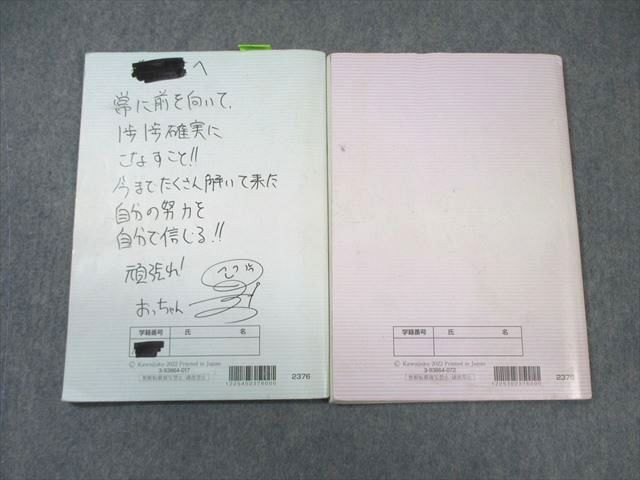 へ
常に前を向いて、
1歩1歩確実に
こなすこと!!
今までたくさん解いて来た
自分の努力を
自分で信じる!!
頑張れ!
おっちゃん
学籍番号 氏 名
© Kawaijuku 2022 Printed in Japan
3-93864-017
無断転載複写禁止・譲渡禁止
1225402376000
2376
学籍番号 氏 名
© Kawaijuku 2022 Printed in Japan
3-93864-072
無断転載複写禁止・譲渡禁止
1225302376000
2376